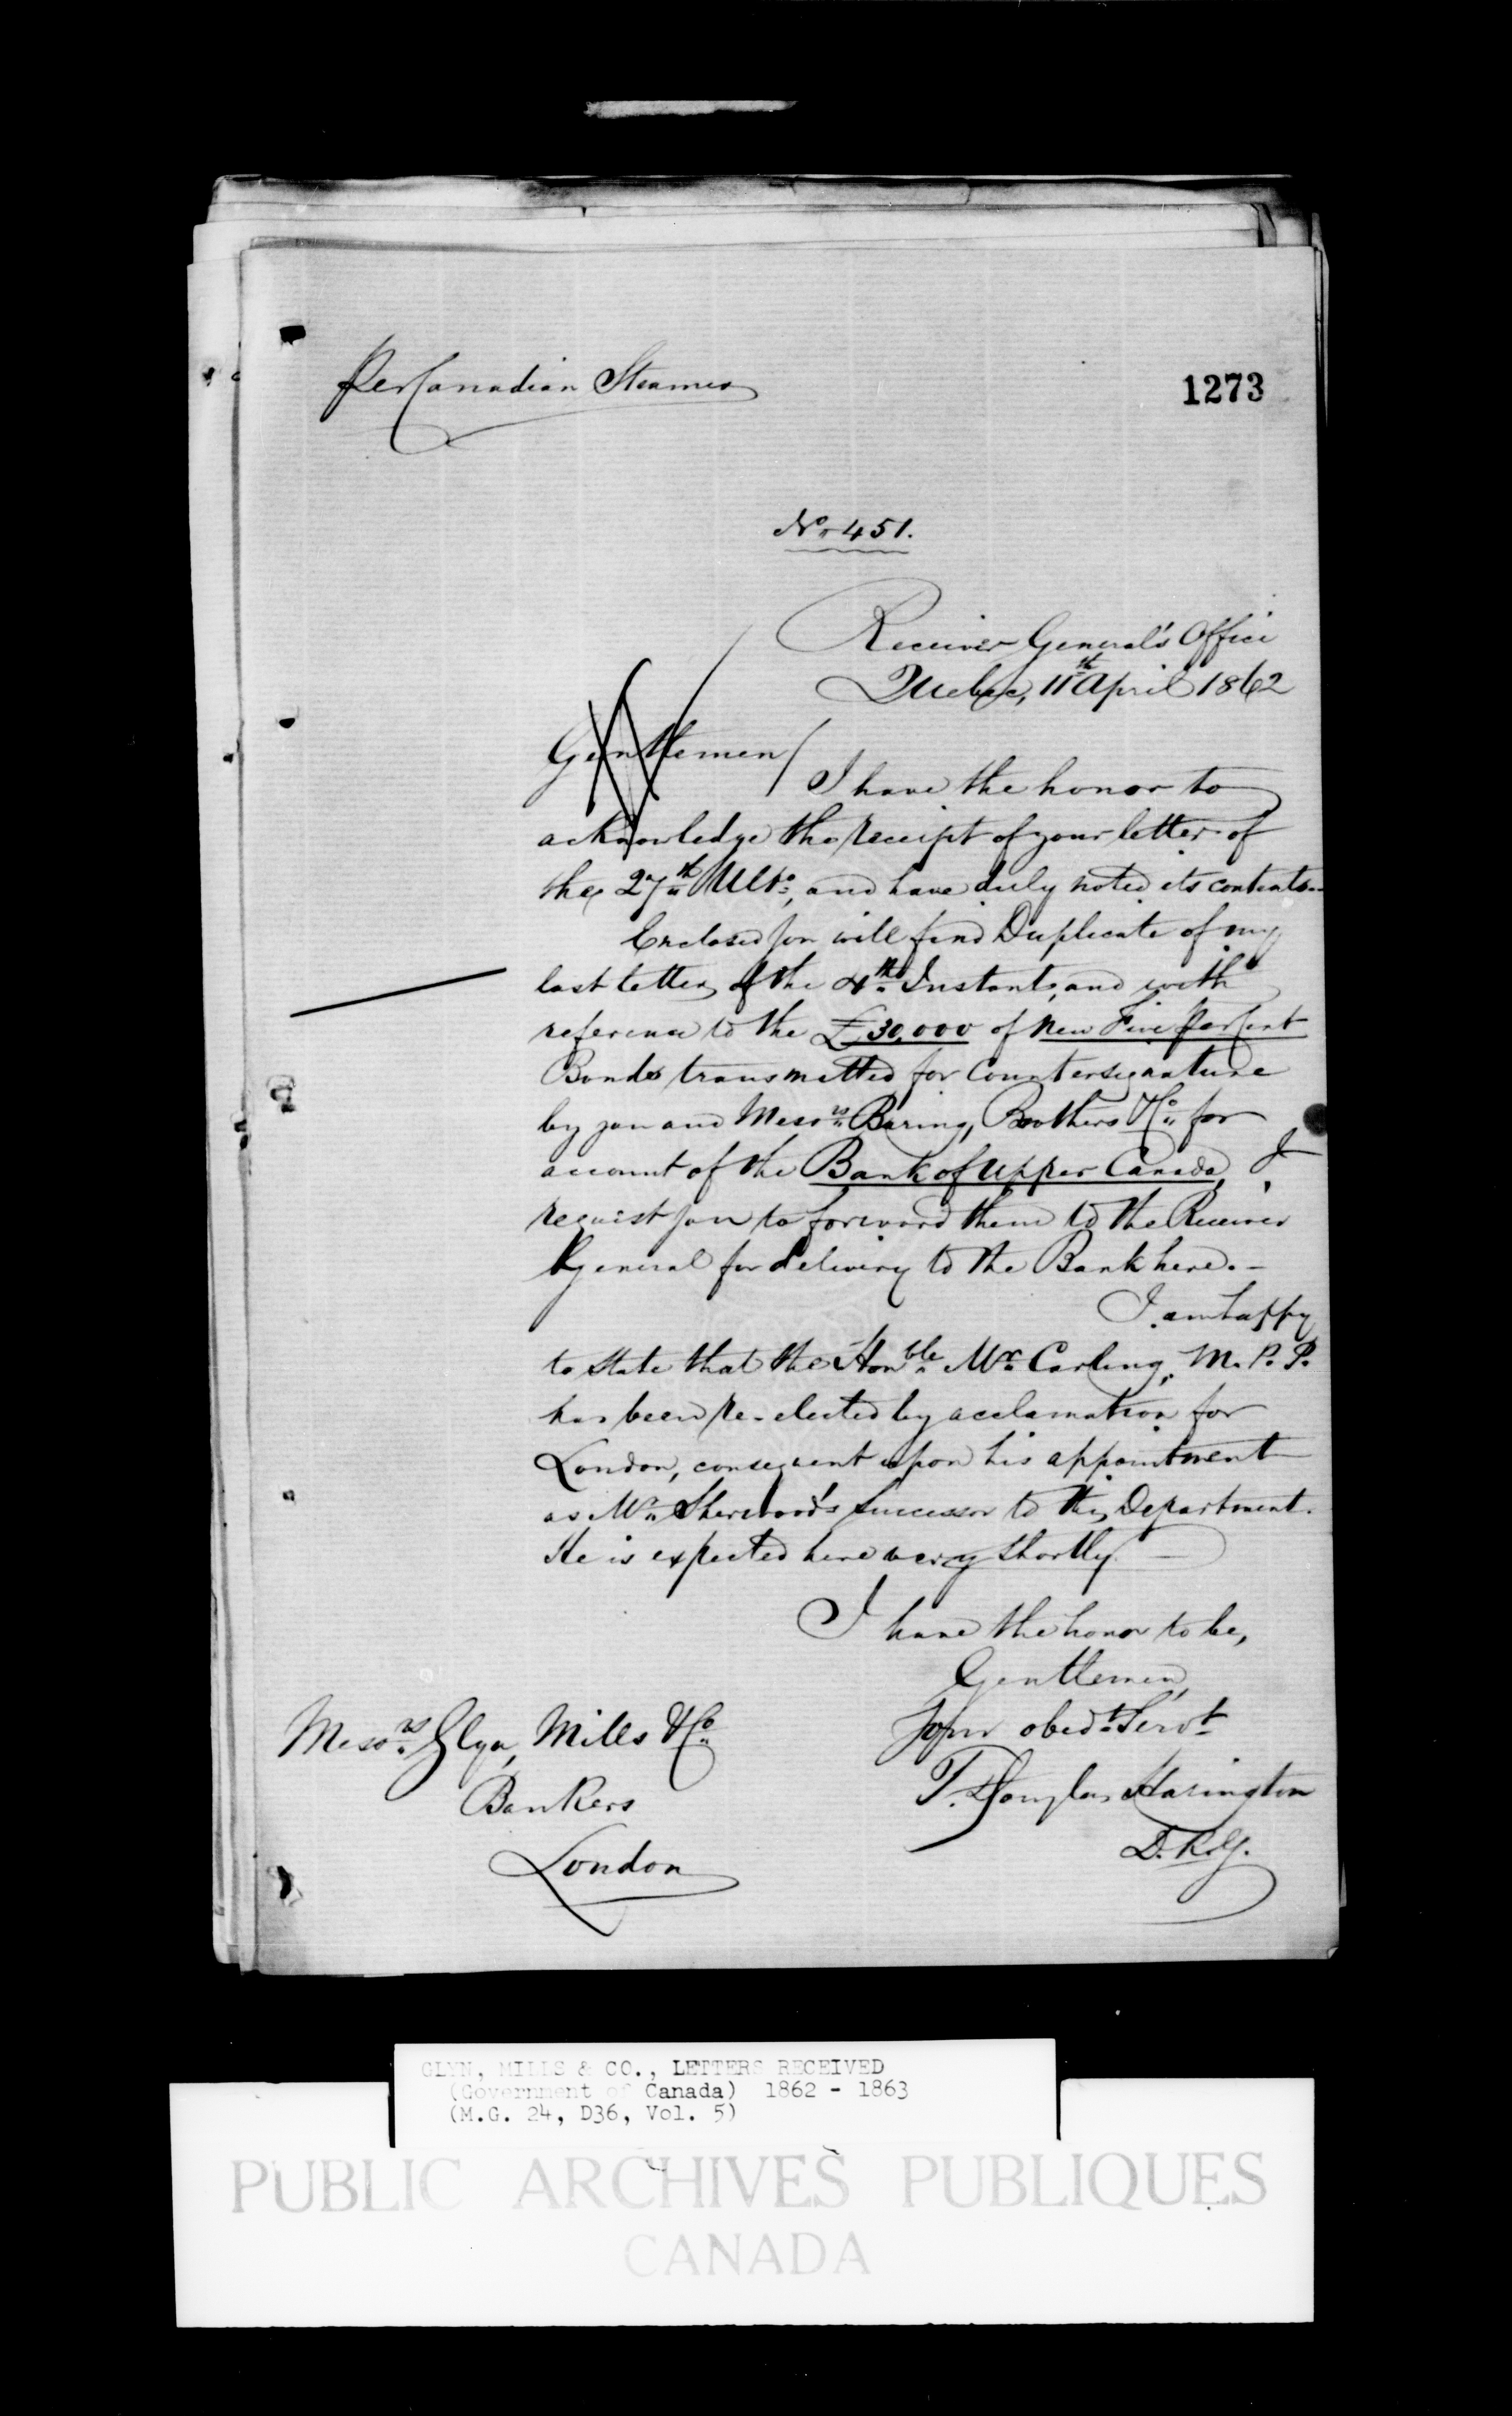 Per Canadian Steamer
1273
No. 451.
Receiver General's Office
Quebec, 11th April 1862
Gentlemen/
I have the honor to
acknowledge the receipt of your letter of
the 27th Ulto., and have duly noted its contents.
Enclosed you will find Duplicate of my
last letter of the 4th Instant, and with
reference to the £30,000 of new Five per Cent
Bonds transmitted for Countersignature
by you and Messrs. Baring, Brothers & Co. for
account of the Bank of Upper Canada, I
request you to forward them to the Receiver
General for delivery to the Bank here. -
I am happy
to state that the Honble. Mr. Carling, M.P.P.
has been re-elected by acclamation for
London, consequent upon his appointment
as Mr. Sherwood's Successor to this Department.
He is expected here very shortly. —
I have the honor to be,
Gentlemen,
Your obedt. Servt.
T. Douglas Harington
D.R.G.
Messrs. Glyn, Mills & Co.
Bankers
London
GLYN, MILLS & CO., LETTERS RECEIVED
(Government of Canada) 1862 - 1863
(M.G. 24, D36, Vol. 5)
PUBLIC ARCHIVES PUBLIQUES
CANADA